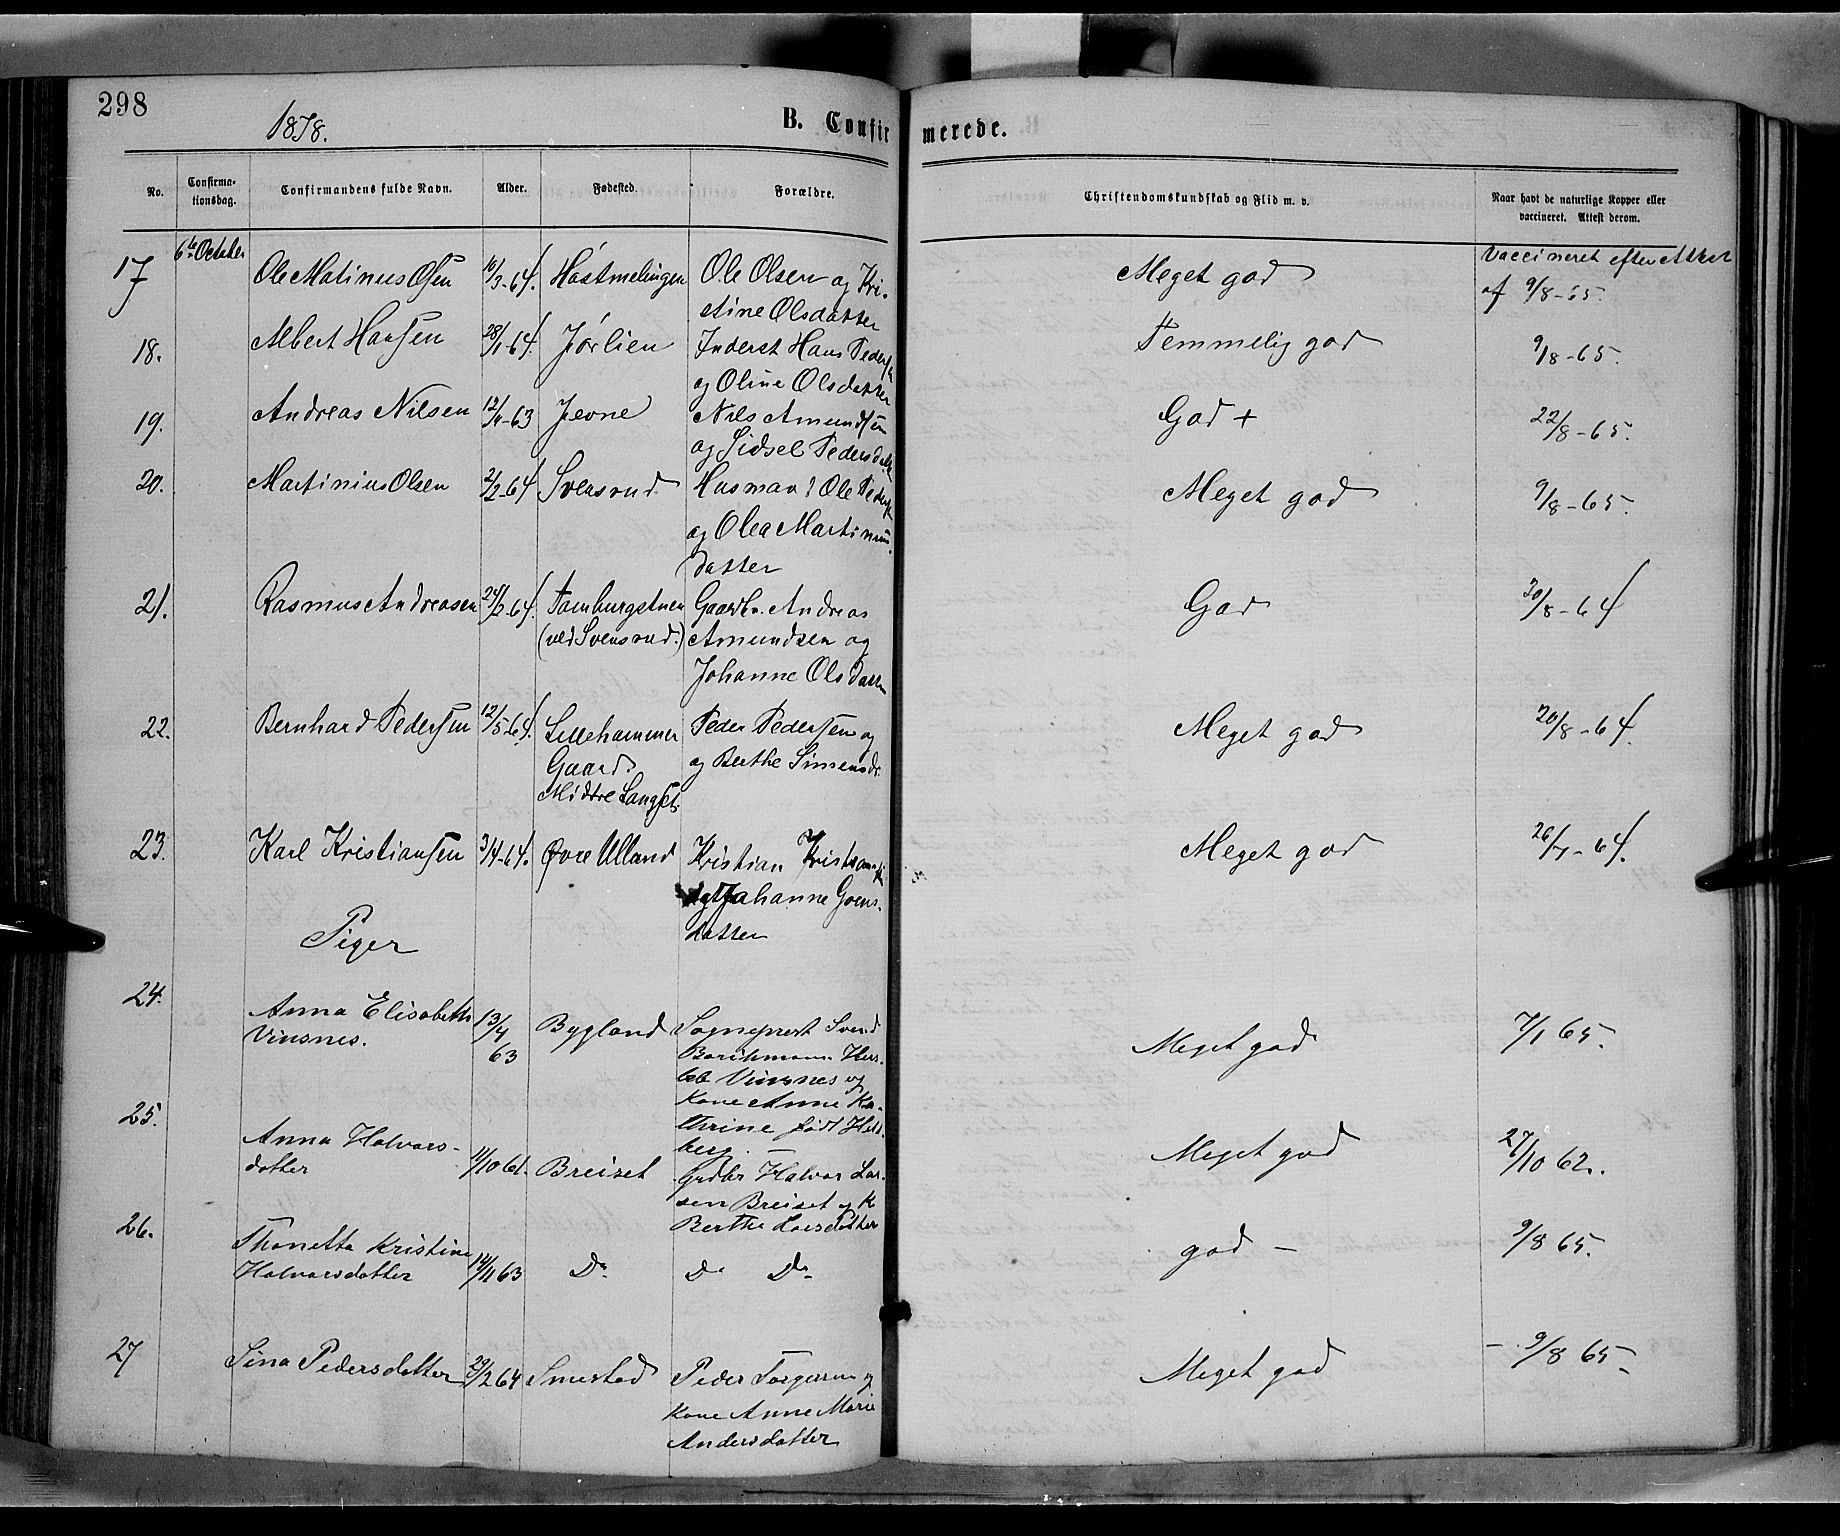 298
1878.
B. Confirmerede.
No. Confirmationsdag. Confirmandens fulde Navn. Alder. Fødested. Forældre. Christendomskundskab og Flid m. v. Naar havt de naturlige Kopper eller vaccineret. Attest derom.
6te October
17 Ole Matinus Olsen 16/3-64. Ole Olsen og Kri- Meget god Vaccineret efter Attest
stine Olsdatter af 9/8-65.
18. Albert Hansen 28/1-64. Jørlien Inderst Hans Peders Temmelig god 9/8-65.
og Oline Olsdatter
19. Andreas Nilsen 12/4-63 Jevne Nils Amundsen God + 22/8-65.
og Sidsel Pedersdatter
20. Martinius Olsen 2/2-64 Svensrud Husmand Ole Peders Meget god 9/8-65.
og Olea Martinus-
datter
21. Rasmus Andreasen 24/2-64. Gaardbr. Andreas God 30/8-64
(ved Svensrud.) Amundsen og
Johanne Olsdatter
22. Bernhard Pedersen 12/5-64. Lillehammer Peder Pedersen og Meget god 20/8-64.
Gaard. og Berthe Simensdr.
Midtre Langset
23. Karl Kristiansen 3/4-64. Øvre Ulland Kristian Meget god 26/7-64.
Johanne
datter
Piger
24. Anna Elisabeth 13/4 Bygland Sogneprest Svend Meget god 7/1 65.
Vinsnes. 63 Borchmann Hers-
leb Vinsnes og
Kone Anne Ka-
thrine født
berg.
25. Anna Halvors- 11/10 61. Breiset Grdbr Halvor Lar- Meget god 27/10 62.
datter sen Breiset og K
Berthe Larsdatter
26. Thonetta Kristine 14/11 63 Do Do Do god - 9/8 65.
Halvorsdatter
27 Sina Pedersdatter 29/2 64 Smestad Peder Torgersen og Meget god - 9/8 65-
Kone Anne Marie
Andersdatter